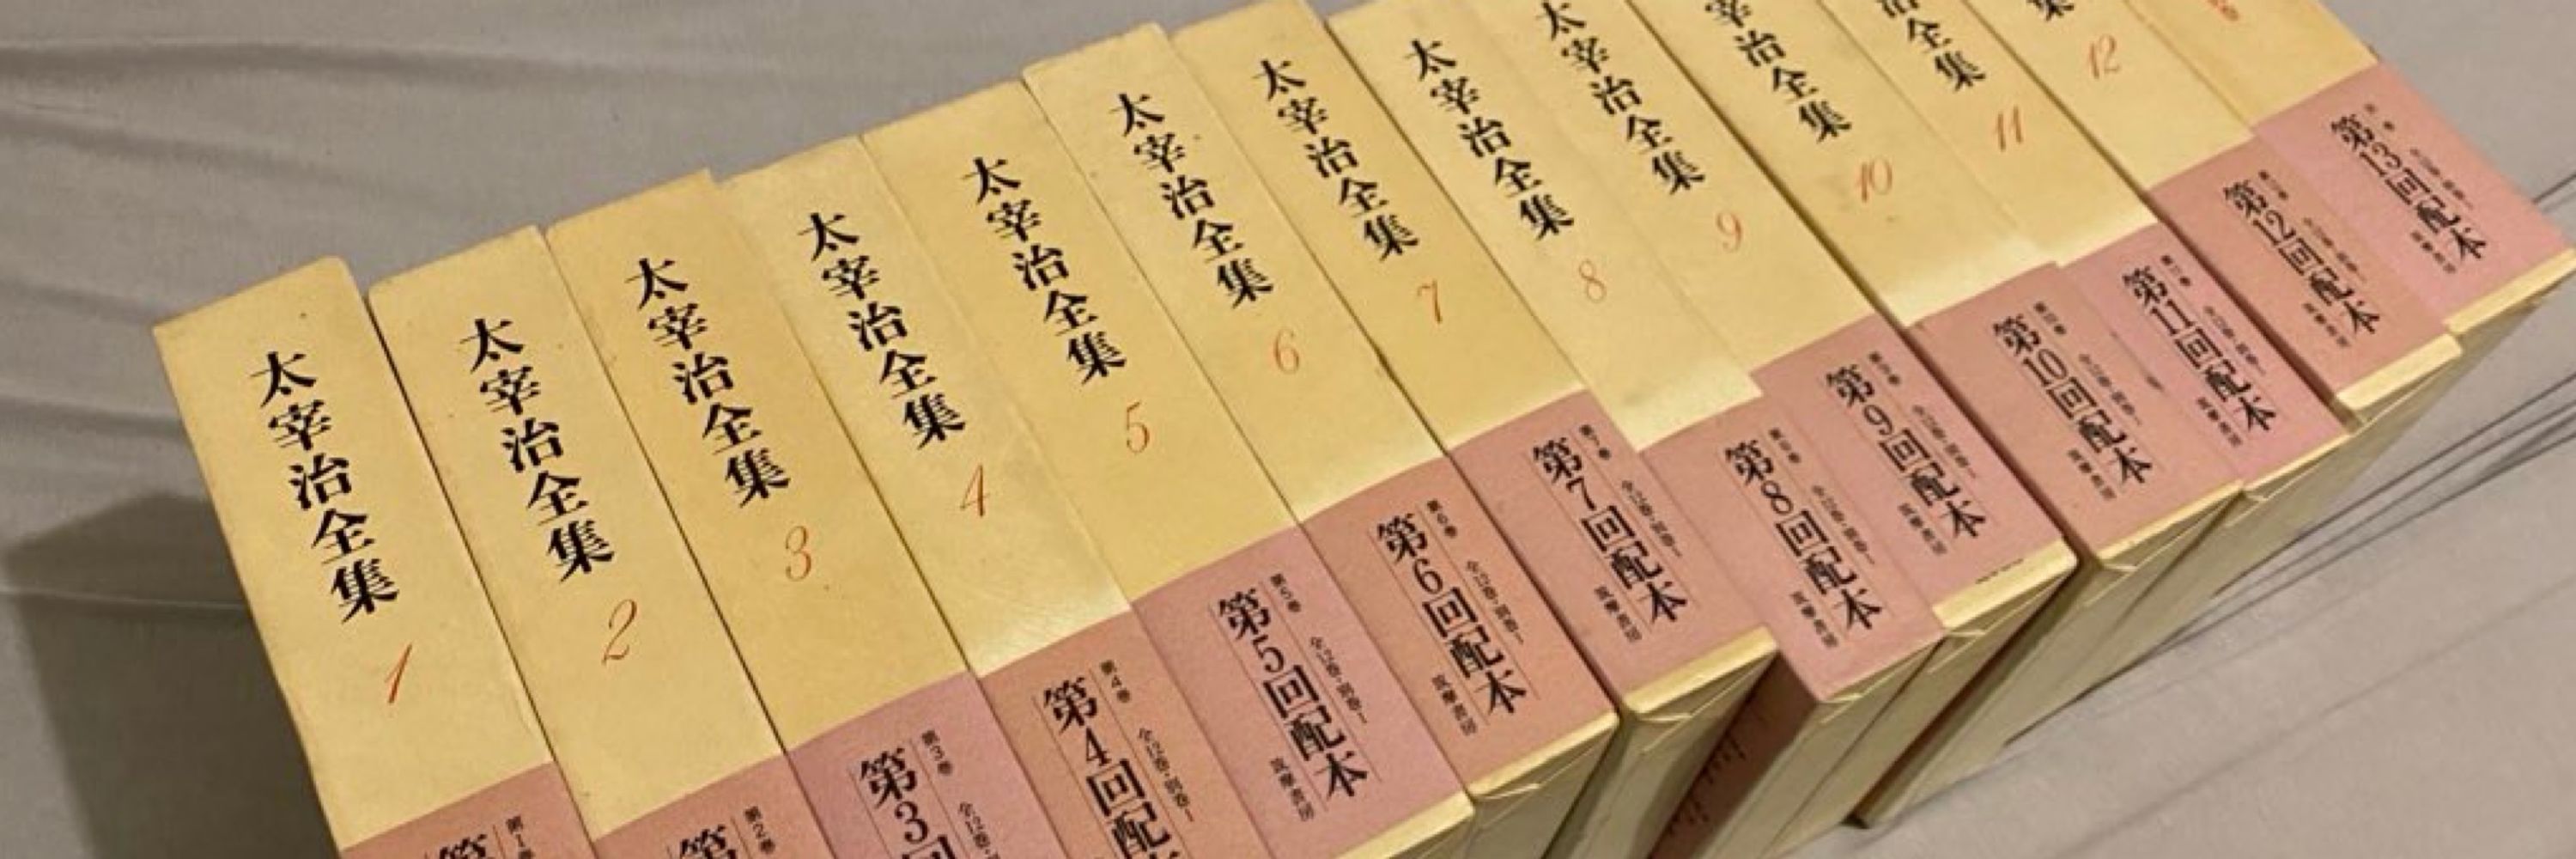 太宰治全集 1
第1巻
第
太宰治全集 2
第2巻
第
太宰治全集 3
第3巻 全12巻・別
第3回
太宰治全集 4
第4巻 全12巻・別巻1
第4回配本
太宰治全集 5
第5巻 全12巻・別巻1
第5回配本
筑摩書房
太宰治全集 6
第6巻 全12巻・別巻1
第6回配本
筑摩書房
太宰治全集 7
第7巻 全12巻・別巻1
第7回配本
筑摩書房
太宰治全集 8
第8巻 全12巻・別巻1
第8回配本
筑摩書房
太宰治全集 9
第9巻 全12巻・別巻1
第9回配本
筑摩書房
宰治全集 10
第10巻 全12巻・別巻1
第10回配本
筑摩書房
治全集 11
第11巻 全12巻・別巻1
第11回配本
筑摩書房
集 12
第12巻 全12巻・別巻1
第12回配本
筑摩書房
全12巻・別巻1
第13回配本
筑摩書房